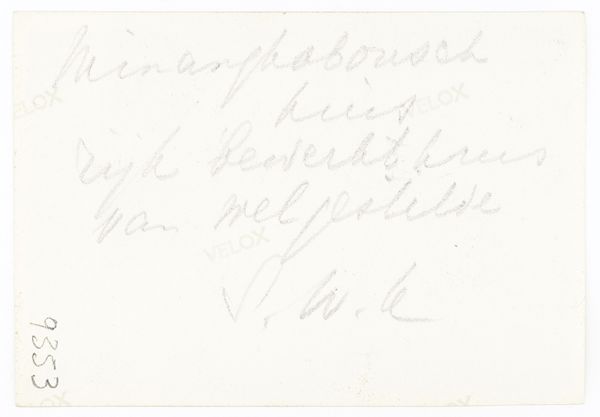 Minangkabousch
huis
rijk bewerkt huis
van welgestelde
S.W.K
9353
VELOX
VELOX
VELOX
VELOX
VELOX